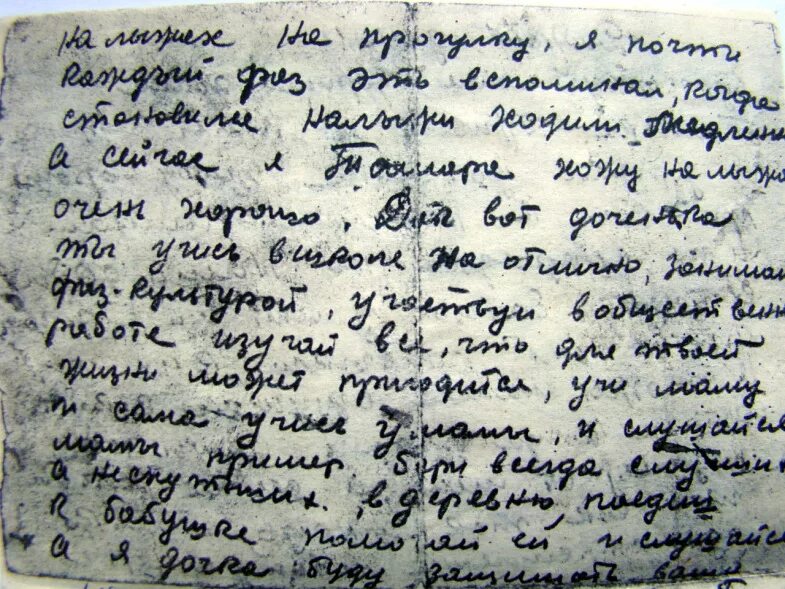 на лыжах на прогулку, я почти
каждый раз это вспоминал, когда
становился на лыжи ходили
а сейчас я хожу на лыжа
очень хорошо, вот доченька
ты учись в школе на отлично, занимай
физ-культурой, участвуй в обществен
работе изучай все, что для твоей
жизни может пригодится, учи маму
и сама учись у мамы, и слушайся
мамы пример бери всегда
а в деревню поедиш
к бабушке помогай ей и слушайся
а я дочка буду защищать